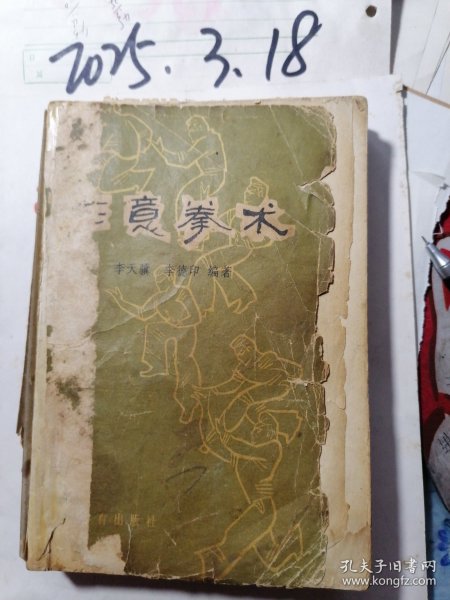 2025.3.18
形意拳术
李天骥 李德印 编著
育出版社
孔夫子旧书网
www.kongfz.com